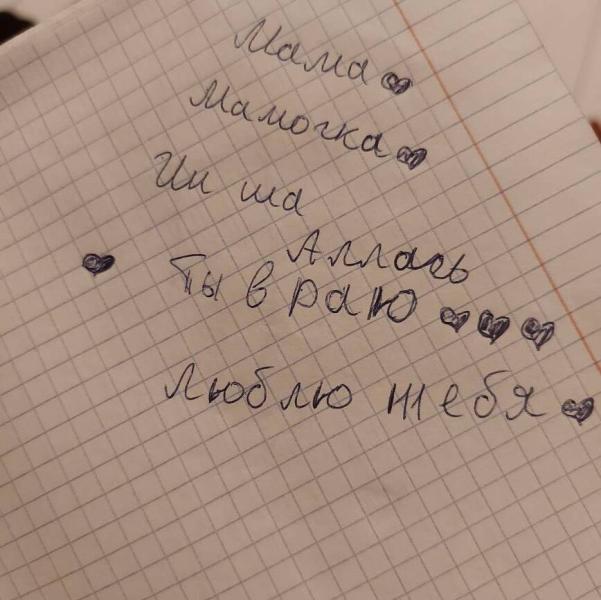 Мама
Мамочка
Ин ша
Аллагь
Ты в раю
Люблю тебя